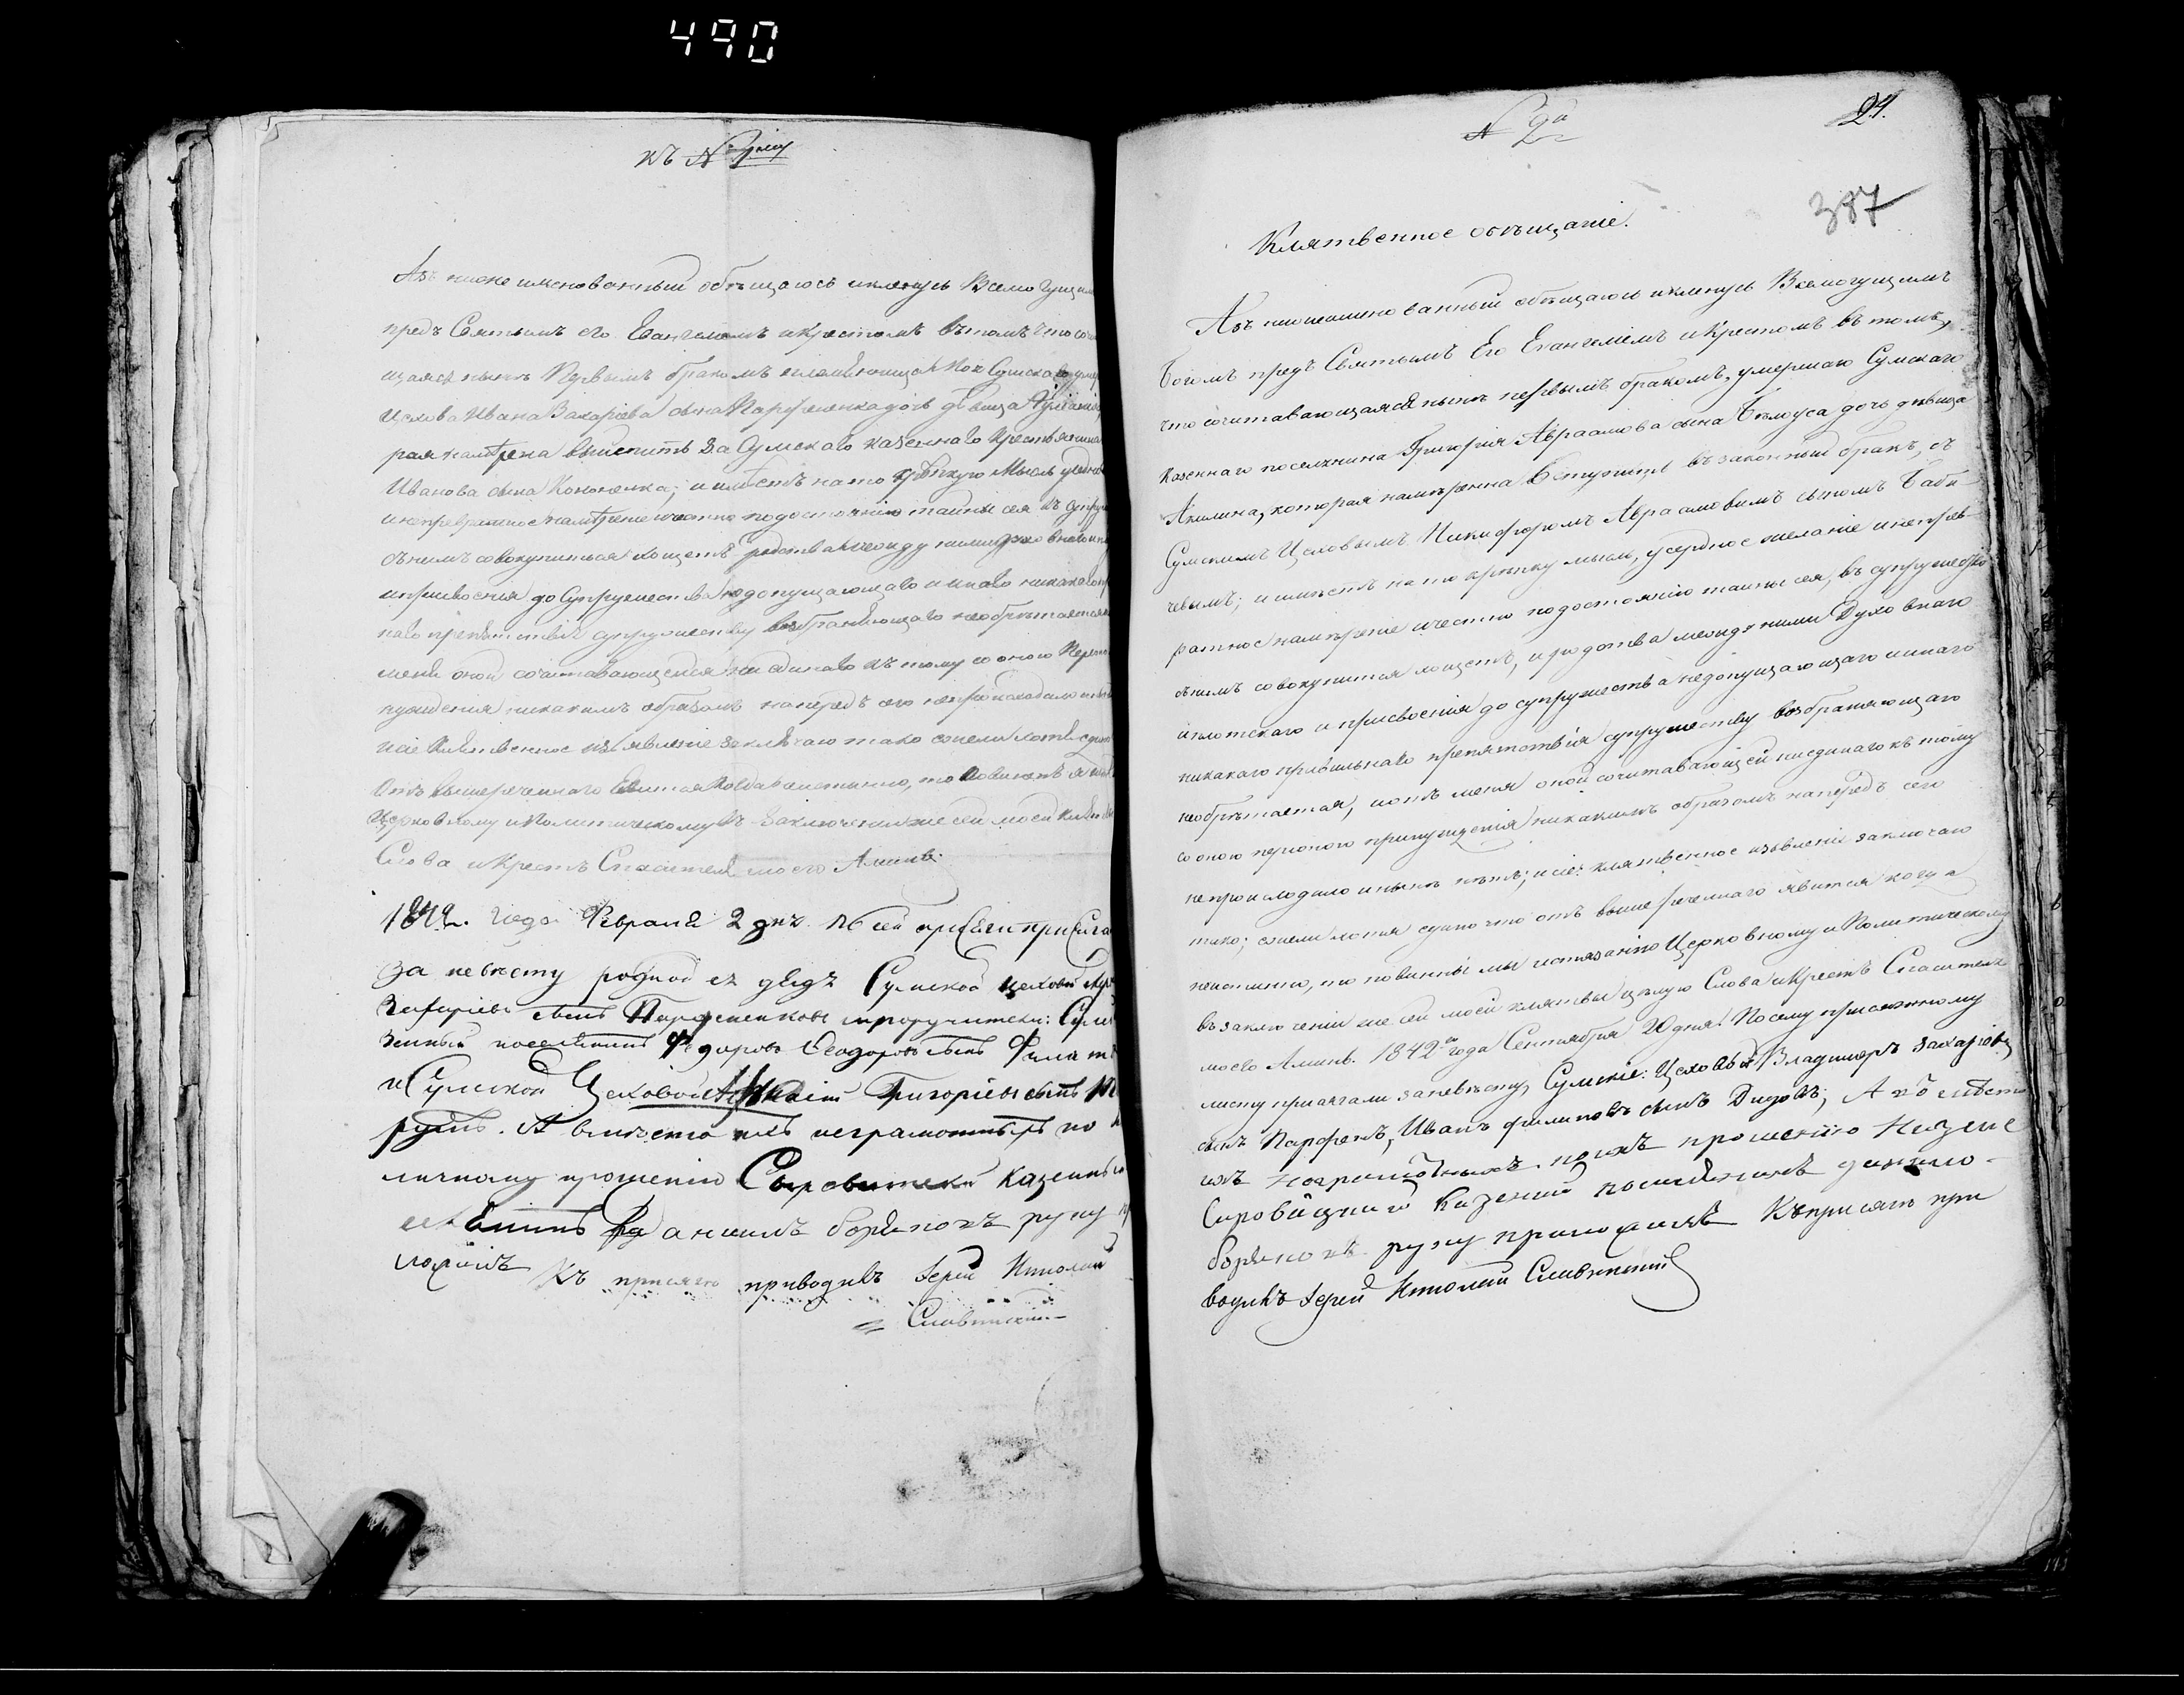 490
къ №
Азъ ниже имянованный обѣщаюсь и кленусь Всемогущим
предъ Святымъ его Евангелiемъ и крестомъ въ томъ что соч
щаяся нынѣ Первымъ бракомъ Сумскаго умер
Цеховаго Ивана Захарiева сына Парфененка дочь дѣвица
рая намѣрена вступить за Сумскаго казеннаго крестьянина
Иванова сына Кононенка; и имѣетъ на то крѣпкую мысль усердн
и непревратное намѣренiе и честно по достоянiю тайны сея въ супру
съ нимъ совокупитися хощетъ родства между ними духовнаго и пл
и присвоенiя до Супружества недопущающаго и инаго никакого пр
наго препятствiя супружеству возбраняющаго необрѣтается
меня оной сочитавающейся ни единаго къ тому со оною
пуждения никакимъ образомъ напередъ сего непроисходило и нын
и сiе Клятвенное изъявленiе заключаю тако ежели хотя едино
отъ вышереченнаго явится когда неистинно, то повиненъ я
Церковному и Политическому въ заключенiи же сей моей клят
Слова и Крестъ Спасителя моего Аминь.
1842. года Февраля 2 дня. По сей присяги присяга
за невѣсту родной ея дядя Сумской цеховой
Захарiевъ сынъ Парфененковъ и поручители: Сумс
зенный поселянинъ Федоровъ сынъ
и Сумской Цеховой Григорiевъ сынъ
А вмѣсто ихъ неграмотныхъ по
личному прошенiю Сыроватской казенный
Данiилъ борянохъ руку п
ложилъ Къ присягѣ приводилъ Iерей Николай
Слав
№ 2й
24.
387
Клятвенное обѣщанiе.
Азъ нижеимянованный обѣщаюсь и кленусь Всемогущимъ
Богомъ предъ Святымъ Его Евангелiемъ и Крестомъ въ томъ,
что сочитавающаяся нынѣ первымъ бракомъ, умершаго Сумскаго
Казеннаго поселянина Григорiя Авраамова сына Бѣлоуса дочь дѣвица
Акилина, которая намѣренна вступить въ законный бракъ, съ
Сумскимъ Цеховымъ Никифоромъ Авраамовимъ сыномъ Баби
чевымъ; и имѣетъ на то крѣпку мысль, усердное желанiе и непрев
ратное намѣренiе и честно по достоянiю тайны сея, въ супружество
съ нимъ совокупитися хощетъ, и родства между ними Духовнаго
и плотскаго и присвоенiя до супружества недопущающаго и инаго
никакаго правильнаго препятствiя супружеству возбраняющаго
необрѣтается, и отъ меня оной сочитавающейся ни единаго къ тому
со оною персоною принужденiя никакимъ образомъ напередъ сего
непроисходило и нынѣ нѣтъ; и сiе клятвенное изъявленiе заключаю
тако; ежели хотя едино что отъ вышереченнаго явится когда
неистинно, то повинны мы истязанiю Церковному и Политическому
въ заключенiи же сей моей клятвы цѣлую Слова и Крестъ Спасителя
моего Аминь. 1842го года Сентября 20 дня. По сему присяжному
листу присягали за невѣсту, Сумскiе: Цеховый Владимеръ Захарiевъ
сынъ Парфенъ, Иванъ филиповъ сынъ А вместо
ихъ неграмотныхъ по ихъ прошенiю Низше
Сироватскiй казенный поселянинъ данило
борянохъ руку приложилъ Къ присягѣ при
водилъ Iерей Николай